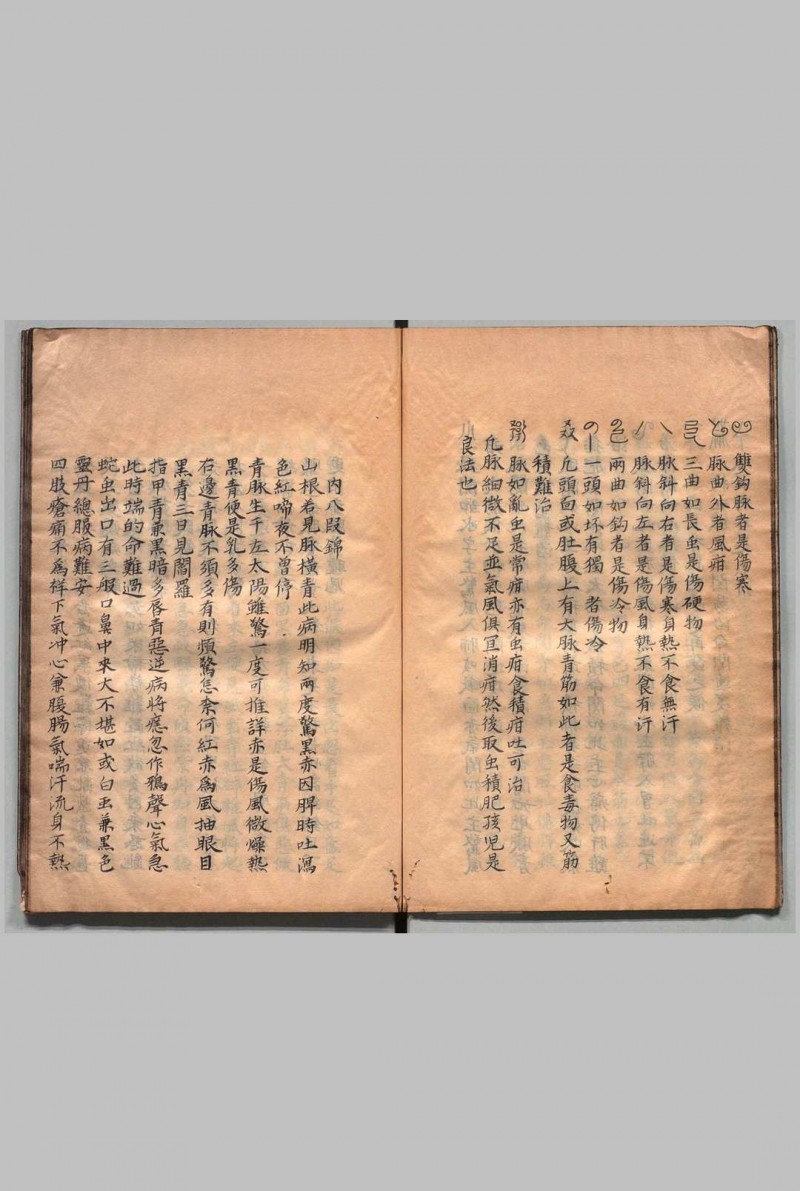 雙鈎脉者是傷寒
脉曲外者風疳
三曲如長虫是傷硬物
脉斜向右者是傷寒身熱不食無汗
脉斜向左者是傷風身熱不食有汗
兩曲如鈎者是傷冷物
一頭如环有獨 者傷冷
凢頭面或肚腹上有大脉青筋如此者是食毒物又筋
積難治
脉如亂虫是常疳亦有虫疳食積疳吐可治
凢脉細微不足並氣風俱宜消疳然後取虫積肥孩児是
良法也
内八段錦
山根若見脉横青此病明知兩度驚黑赤因脾時吐瀉
色紅啼夜不曾停
青脉生于左太陽雖驚一度可推詳赤是傷風微燥熱
黑青便是乳多傷
右邊青脉不須多有則頻驚怎奈何紅赤為風抽眼目
黑青三日見閻羅
指甲青兼黑暗多唇青惡逆病將瘥忽作鴉聲心氣急
此時端的命難過
蛇虫出口有三般口鼻中來大不堪如或白虫兼黑色
靈丹總服病難安
四肢瘡痛不為祥下氣冲心兼腹腸氣喘汗流身不熱